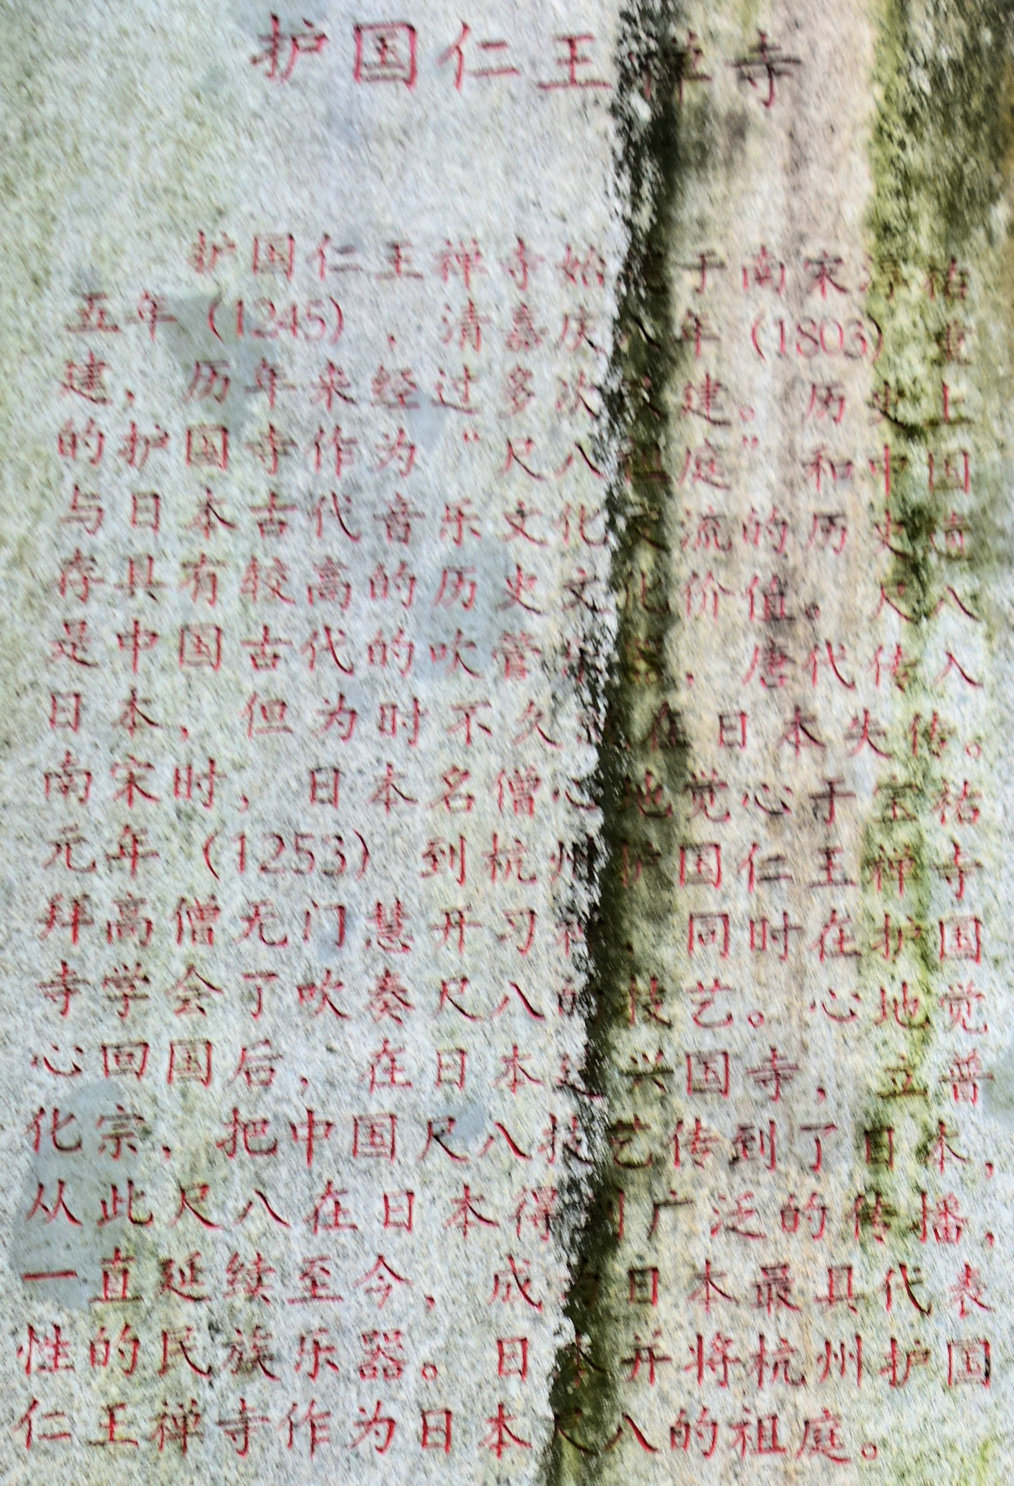 护国仁王禅寺
护国仁王禅寺始于南宋祐
五年（1245），清嘉庆年（1803）重
建，历年来经过多次建。历史上
的护国寺作为“尺八庭”和中国
与日本古代音乐文化流的历史
存具有较高的历史文化价值。尺八
是中国古代的吹管，唐代传入
日本，但为时不久在日本失传。
南宋时，日本名僧心地觉心于宝祐
元年（1253）到杭州护国仁王禅寺
拜高僧无门慧开习，同时在护国
寺学会了吹奏尺八的技艺。心地觉
心回国后，在日本兴国寺，立普
化宗，把中国尺八技艺传到了日本，
从此尺八在日本得到广泛的传播，
一直延续至今，成日本最具代表
性的民族乐器。日本并将杭州护国
仁王禅寺作为日本八的祖庭。